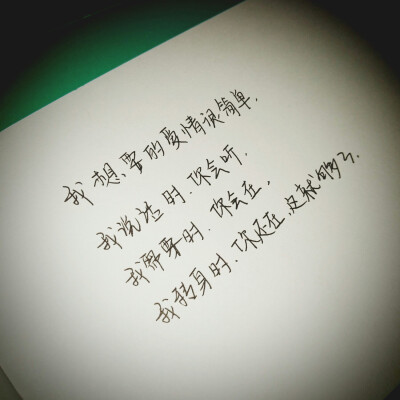 我想要的爱情很简单.
我说话时.你会听.
我需要时.你会在.
我转身时.你还在.这就够了.